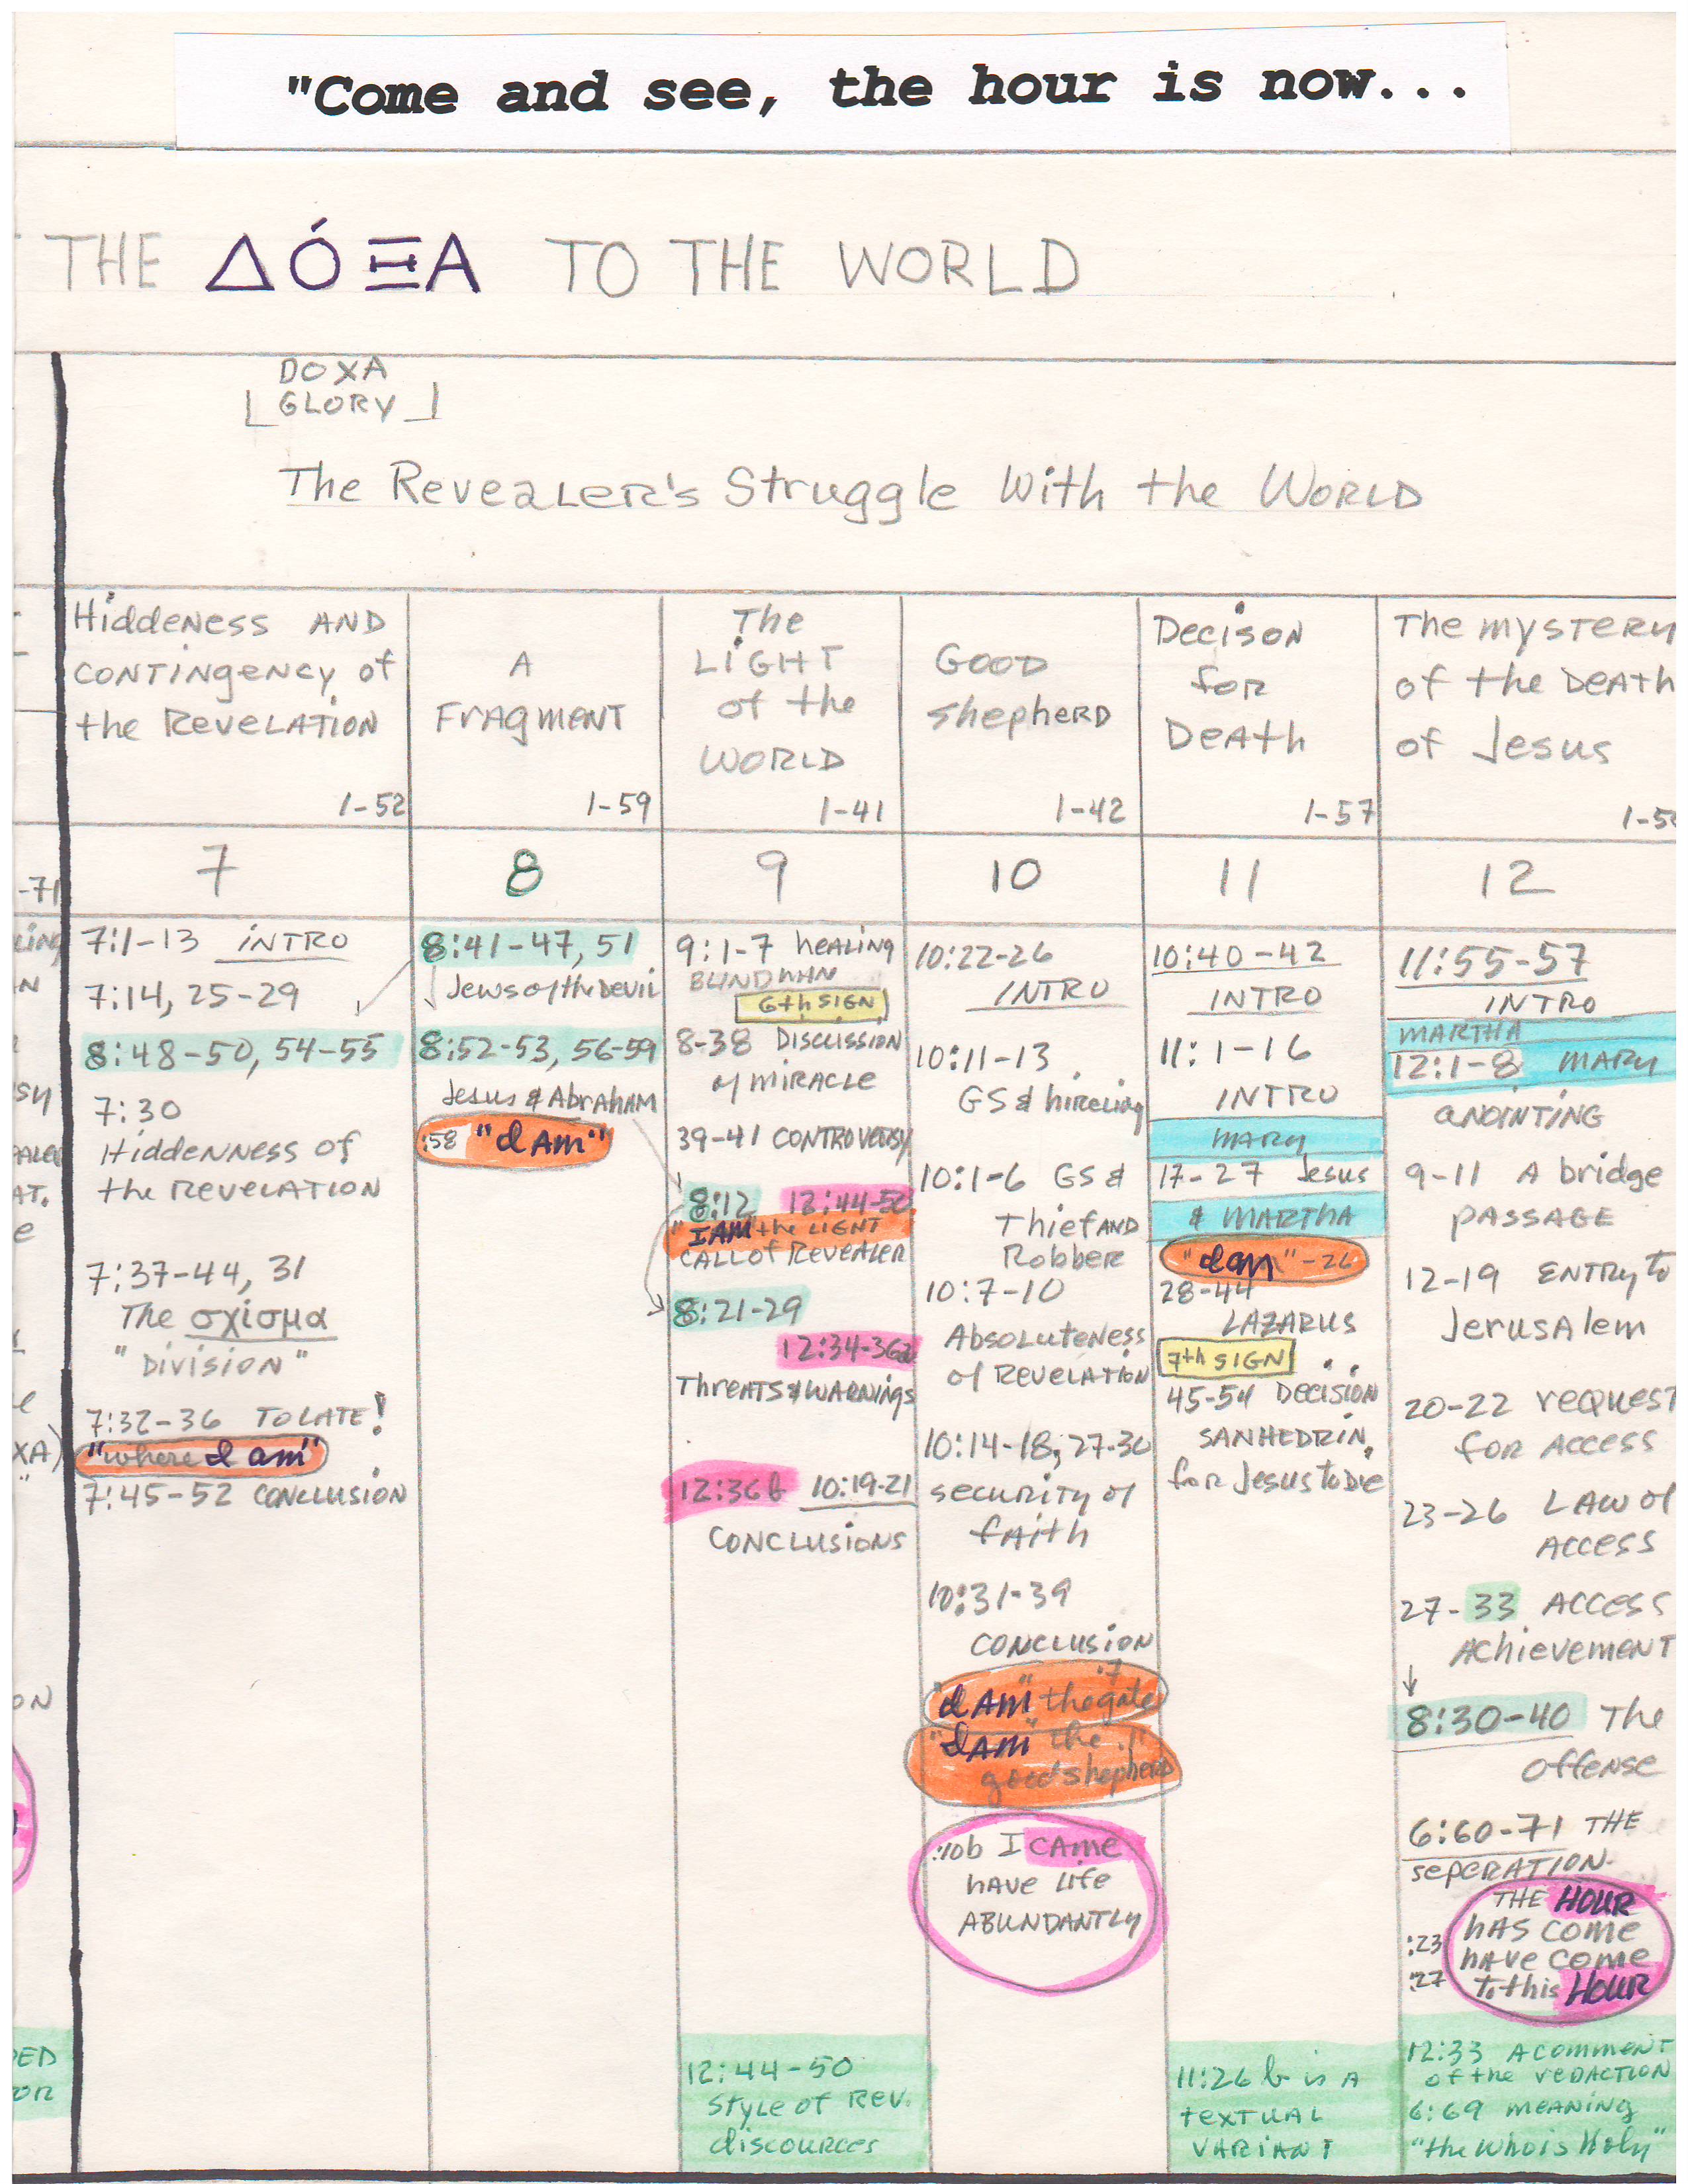 "Come and see, the hour is now...
THE ΔΌΞΑ TO THE WORLD
DOXA
GLORY
The Revealer's Struggle With the World
Hiddeness AND
contingency of
the Revelation
1-52
A
Fragment
1-59
The
LIGHT
of the
WORLD
1-41
Good
Shepherd
1-42
Decison
for
Death
1-57
The mystery
of the Death
of Jesus
-71
7
8
9
10
11
12
7:1-13 INTRO
7:14, 25-29
8:48-50, 54-55
7:30
Hiddenness of
the Revelation
7:37-44, 31
The σχισμα
"Division"
7:32-36 TO LATE!
"where I am"
7:45-52 CONCLUSION
8:41-47, 51
Jews of the Devil
8:52-53, 56-59
Jesus & Abraham
:58 "I AM"
9:1-7 healing
BLIND MAN
6th SIGN
8-38 Discussion
of miracle
39-41 controversy
8:12 12:44-50
"I AM" the LIGHT
CALL of Revealer
8:21-29
12:34-36a
Threats & Warnings
12:36b 10:19-21
CONCLUSIONS
12:44-50
Style of Rev.
discources
10:22-26
INTRO
10:11-13
GS & hireling
10:1-6 GS &
Thief AND
Robber
10:7-10
Absoluteness
of Revelation
10:14-18, 27-30
security of
faith
10:31-39
CONCLUSION
"I AM" the gate :7
"I AM" the
good shepherd
:10b I CAme
have life
ABUNDANTLY
10:40-42
INTRO
11:1-16
INTRO
MARY
17-27 Jesus
& MARTHA
"I am" -26
28-44
LAZARUS
7th SIGN
45-54 Decision
SANHEDRIN,
for Jesus to Die
11:26b is A
textual
variant
11:55-57
INTRO
MARTHA
12:1-8 MARY
anointing
9-11 A bridge
passage
12-19 Entry to
Jerusalem
20-22 request
for access
23-26 Law of
Access
27-33 Access
Achievement
8:30-40 The
offense
6:60-71 THE
seperation.
THE HOUR
:23 has come
have come
:27 To this HOUR
12:33 A comment
of the redaction
6:69 meaning
"the who is Holy"